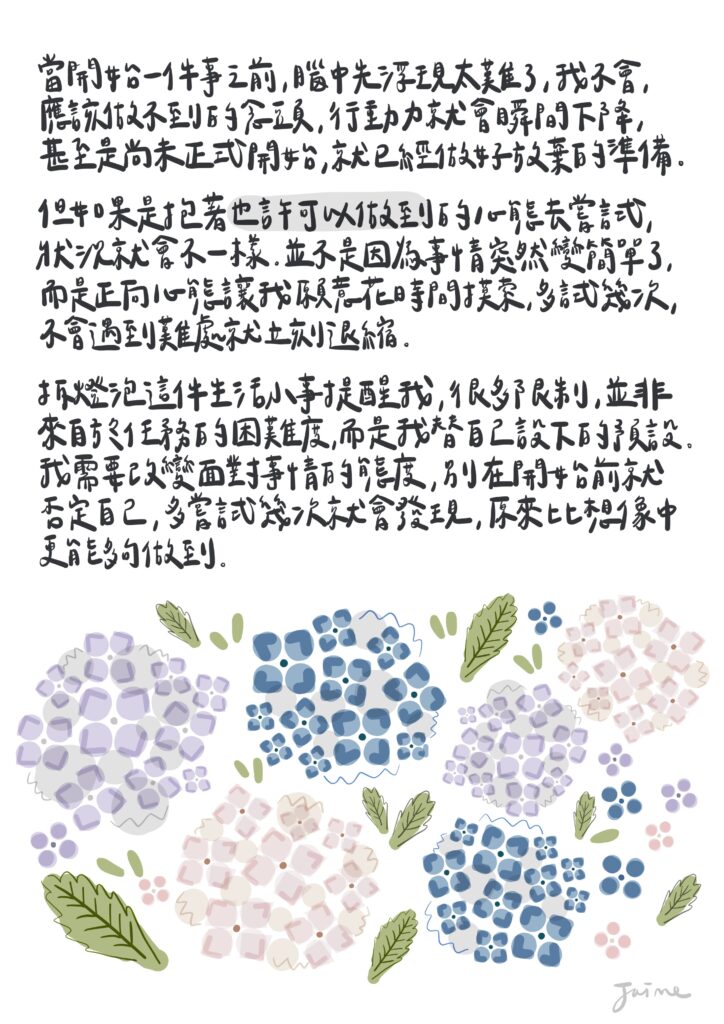 當開始一件事之前，腦中先浮現太難了，我不會，
應該做不到的念頭，行動力就會瞬間下降，
甚至是尚未正式開始，就已經做好放棄的準備。
但如果是抱著也許可以做到的心態去嘗試，
狀況就會不一樣．並不是因為事情突然變簡單了，
而是正向心態讓我願意花時間摸索，多試幾次，
不會遇到難處就立刻退縮。
拆燈泡這件生活小事提醒我，很多限制，並非
來自於任務的困難度，而是我替自己設下的預設。
我需要改變面對事情的態度，別在開始前就
否定自己，多嘗試幾次就會發現，原來比想像中
更能夠做到。
Jaine